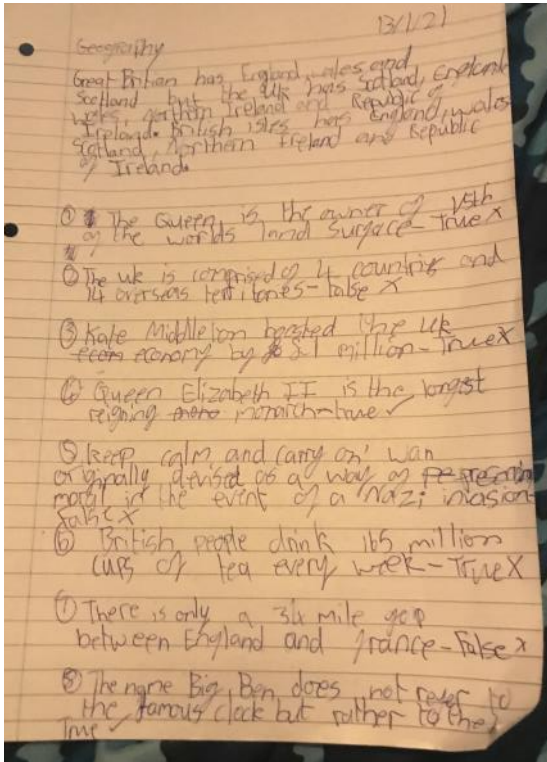 13/1/21
Geography
Great Britian has England, wales and
Scotland but the uk has Scotland, England
wales, northern Ireland and Republic of
Ireland. British isles has England, wales
Scotland, northern Ireland and Republic
of Ireland.
① The Queen is the owner of 1/5th
of the worlds land surface - True X
② The uk is comprised of 4 countries and
14 overseas territories - false X
③ Kate Middleton boosted the uk
economy by £1 million - True X
④ Queen Elizabeth II is the longest
reigning monarch - true ✓
⑤ 'keep calm and carry on' wan
originally devised as a way of
moral in the event of a Nazi invasion -
false X
⑥ British people drink 165 million
cups of tea every week - True X
⑦ There is only a 34 mile gap
between England and france - False X
⑧ The name Big Ben does not refer to
the famous clock but rather to the
True ✓